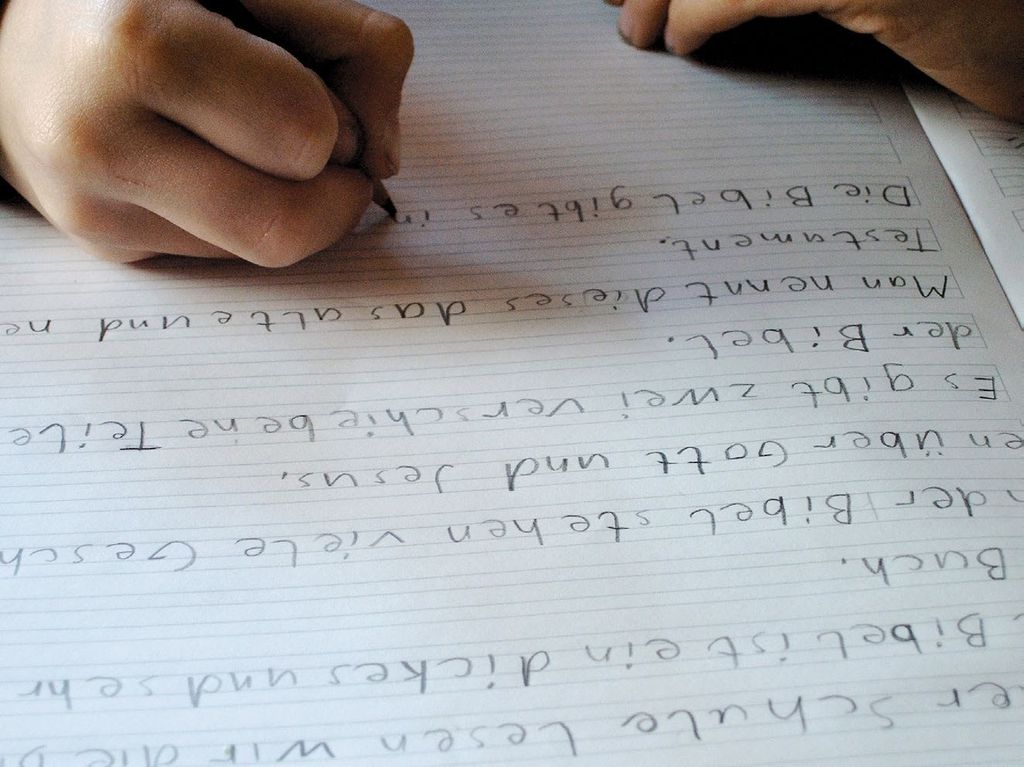 er Schule Lesen wir die B
Bibel ist ein dickes und sehr
Buch.
n der Bibel stehen viele Gesch
en über Gott und Jesus.
Es gibt zwei verschiebene Teile
der Bibel.
Man nennt dieses das alte und ne
Testament.
Die Bibel gibt es in